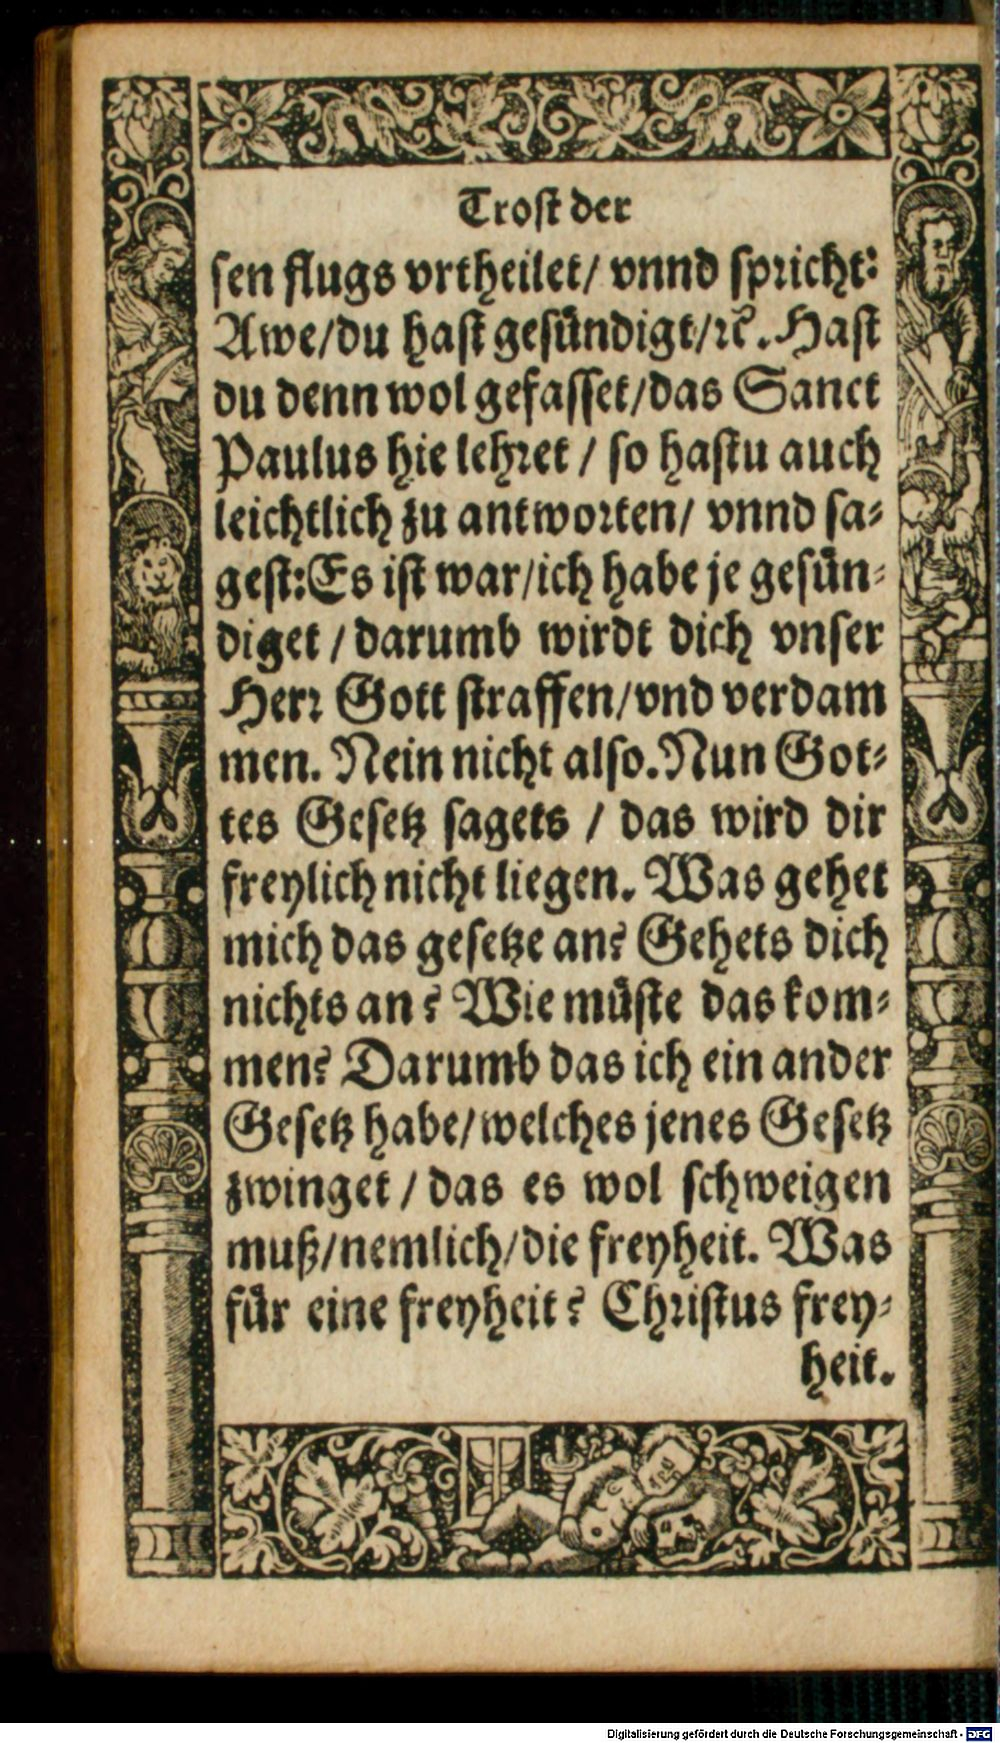 Trost der
sen flugs vrtheilet/ vnnd spricht:
Awe/du hast gesündigt/ꝛc̃. Hast
du denn wol gefasset/das Sanct
Paulus hie lehret / so hastu auch
leichtlich zu antworten/ vnnd sa-
gest:Es ist war/ich habe je gesün-
diget / darumb wirdt dich vnser
Herr Gott straffen/vnd verdam
men. Nein nicht also. Nun Got-
tes Gesetz sagets / das wird dir
freylich nicht liegen. Was gehet
mich das gesetze an? Gehets dich
nichts an? Wie müste das kom-
men? Darumb das ich ein ander
Gesetz habe/welches jenes Gesetz
zwinget / das es wol schweigen
muß/nemlich/die freyheit. Was
für eine freyheit? Christus frey-
heit.
Digitalisierung gefördert durch die Deutsche Forschungsgemeinschaft - DFG